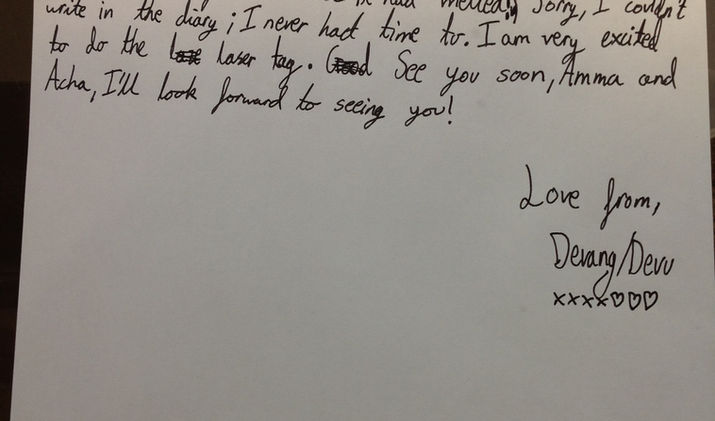 melted. Sorry, I couldn't
write in the diary; I never had time to. I am very excited
to do the laser tag. See you soon, Amma and
Acha, I'll look forward to seeing you!
Love from,
Devang/Devu
xxxx♡♡♡